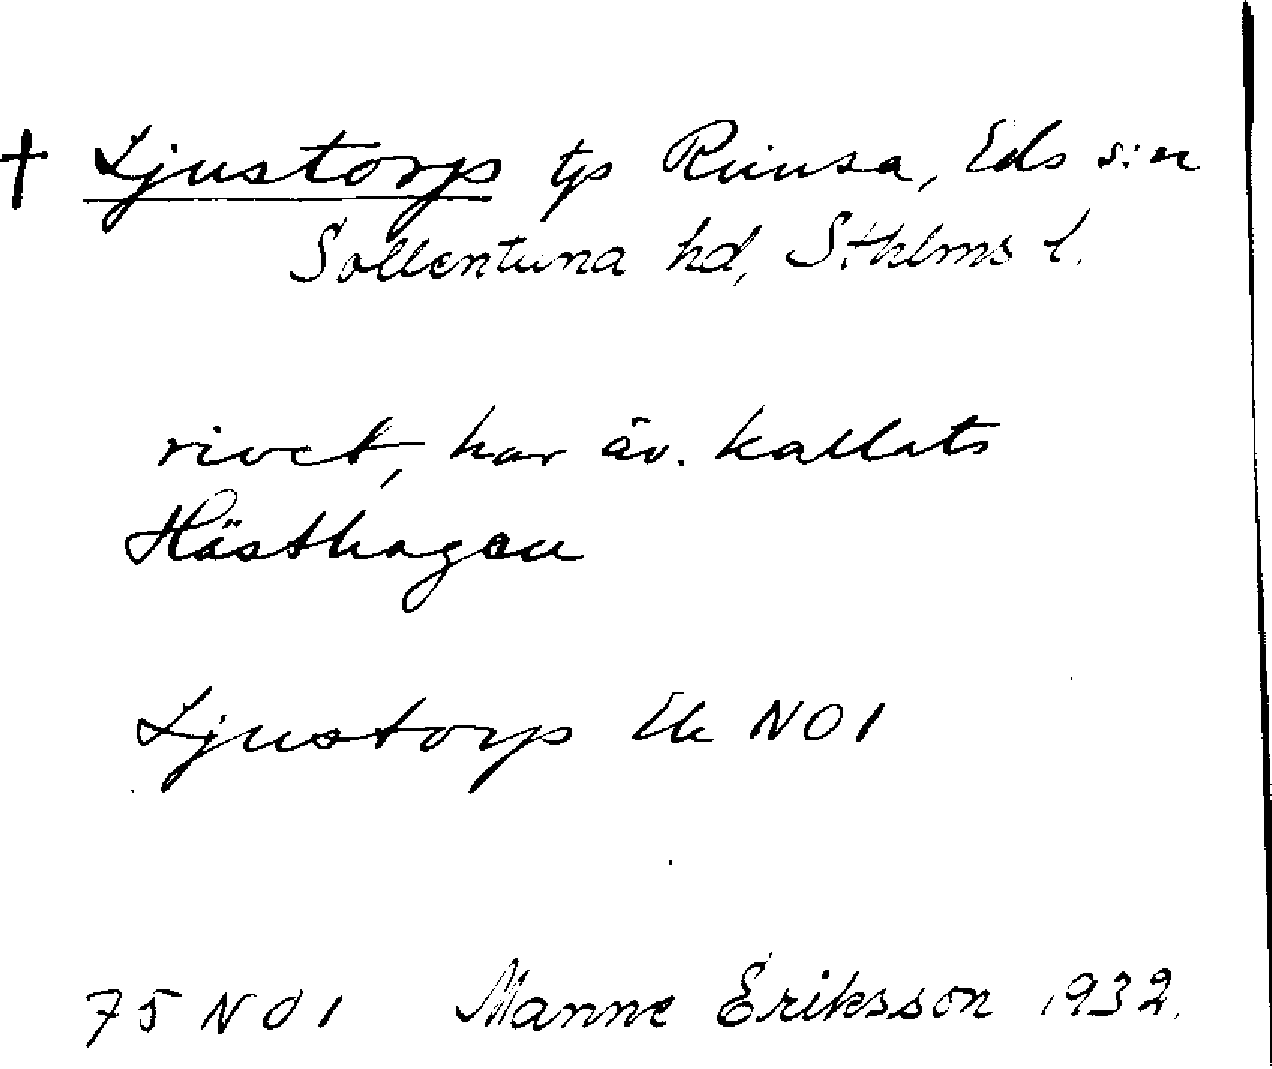 † Ljustorp tp Runsa, Eds s:n
Sollentuna hd, Sthlms l.
rivet, har äv. kallats
Hästhagen
Ljustorp Ek NO1
75 NO1 Manne Eriksson 1932.